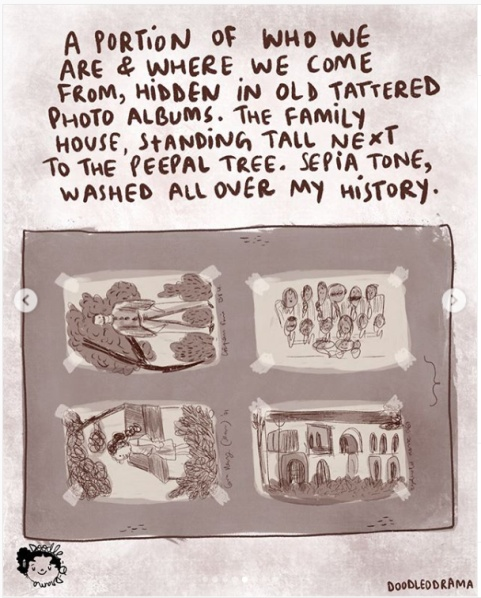 A PORTION OF WHO WE
ARE & WHERE WE COME
FROM, HIDDEN IN OLD TATTERED
PHOTO ALBUMS. THE FAMILY
HOUSE, STANDING TALL NEXT
TO THE PEEPAL TREE. SEPIA TONE,
WASHED ALL OVER MY HISTORY.
Doodle
Drama
DOODLEODRAMA